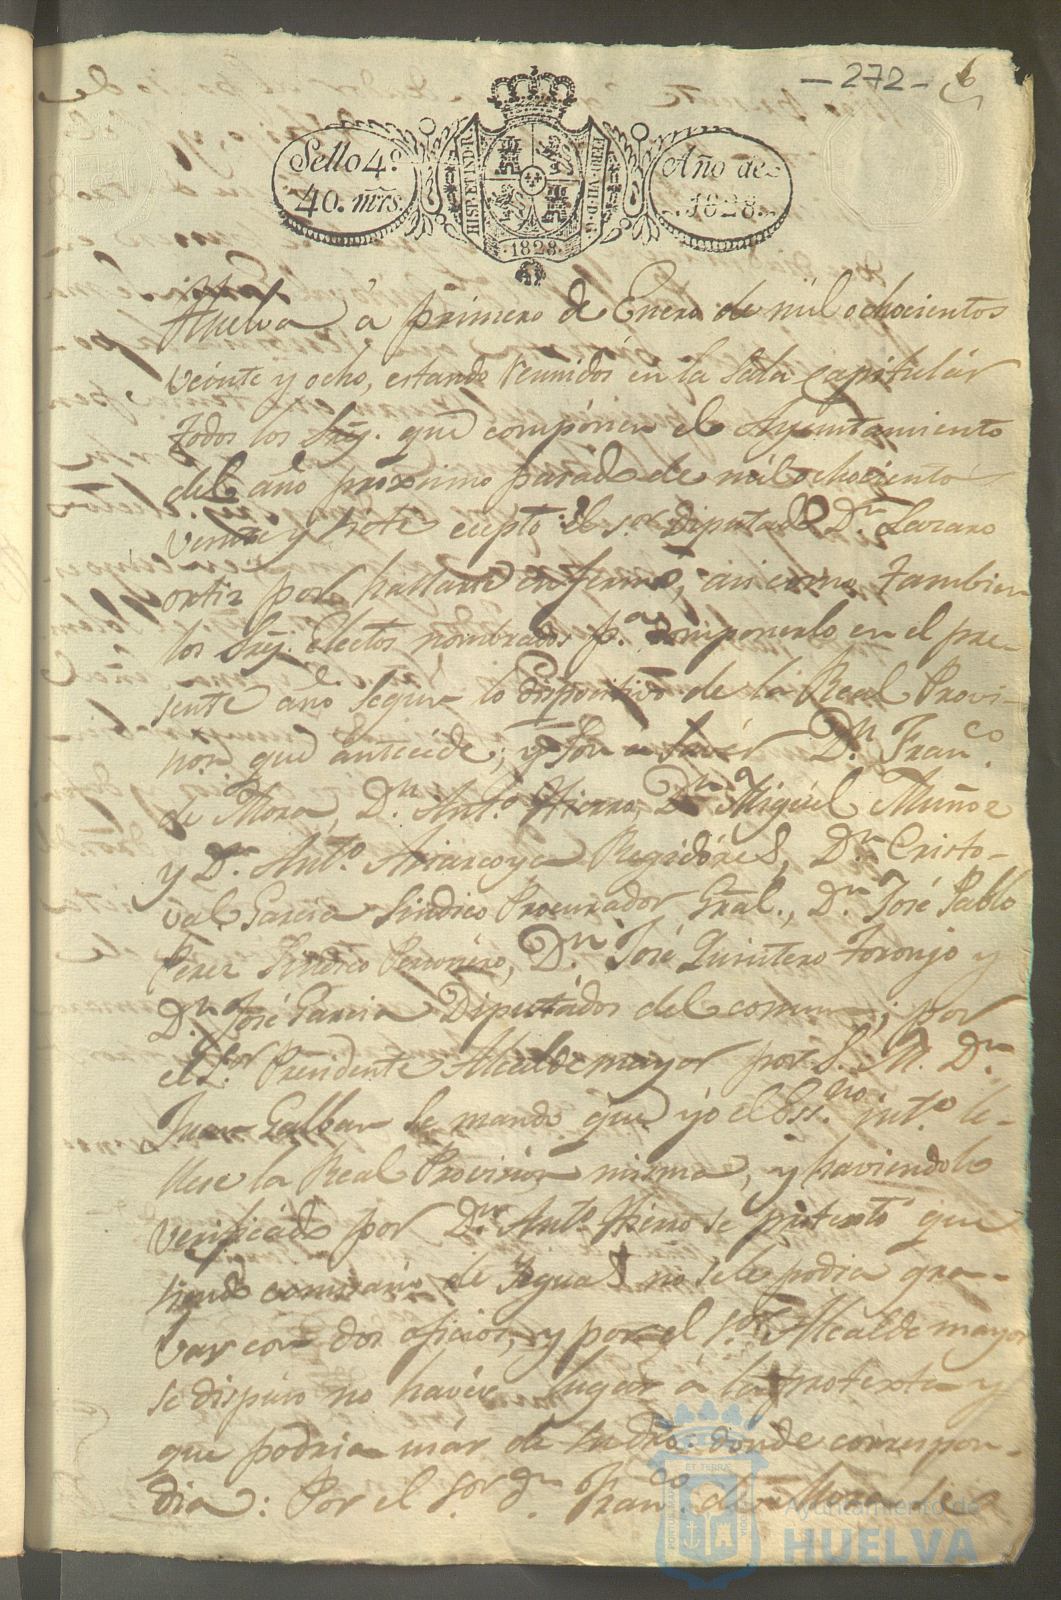 - 272 - 6
Sello 4º.
40. mrs.
HISP. ET IND. R
FERD. VII. D. G.
1828
Año de
1828.
Huelva á primero de Enero de mil ochocientos
veinte y ocho, estando reunidos en la Sala Capitulár
todos los Sres. que compónen el Ayuntamiento
del año proximo pasado de mil ochociento
veinte y siete ecepto el sor. Diputado Dn. Lazaro
ortiz por hallarse enfermo, asi como tambien
los Sres. Electos nombrados pa. componerlo en el pre-
sente año segun lo dispositivo de la Real Provi-
sion que antecede; y son a savér Dn. Franco.
de Mora, Dn. Anto. Hierro, Dn. Miguél Muñoz
y Dn. Anto. Regidóres, Dn. Cristo-
val Garcia Sindico Procurador Gral., Dn. José Pablo
Perez Sindico Personéro, Dn. José Quintero Toronjo y
Dn. José Garcia Diputádos del comun; por
el Sor. Presidente Alcalde mayor por S. M. Dn.
Juan Galban se mando que yo el Essno. int.o le-
llese la Real Provision misma, y haviendolo
verificado por Dn. Anto. Hierro se protextó que
siendo de no sele podia gra-
var con dos oficios, y por el Sr. Alcalde mayor
se dispuso no havér lugar á la protexta y
que podria usár de su dro. donde correspon-
dia: Por el Sor. Dn. Franco. de Mora se
Ayuntamiento de
HUELVA